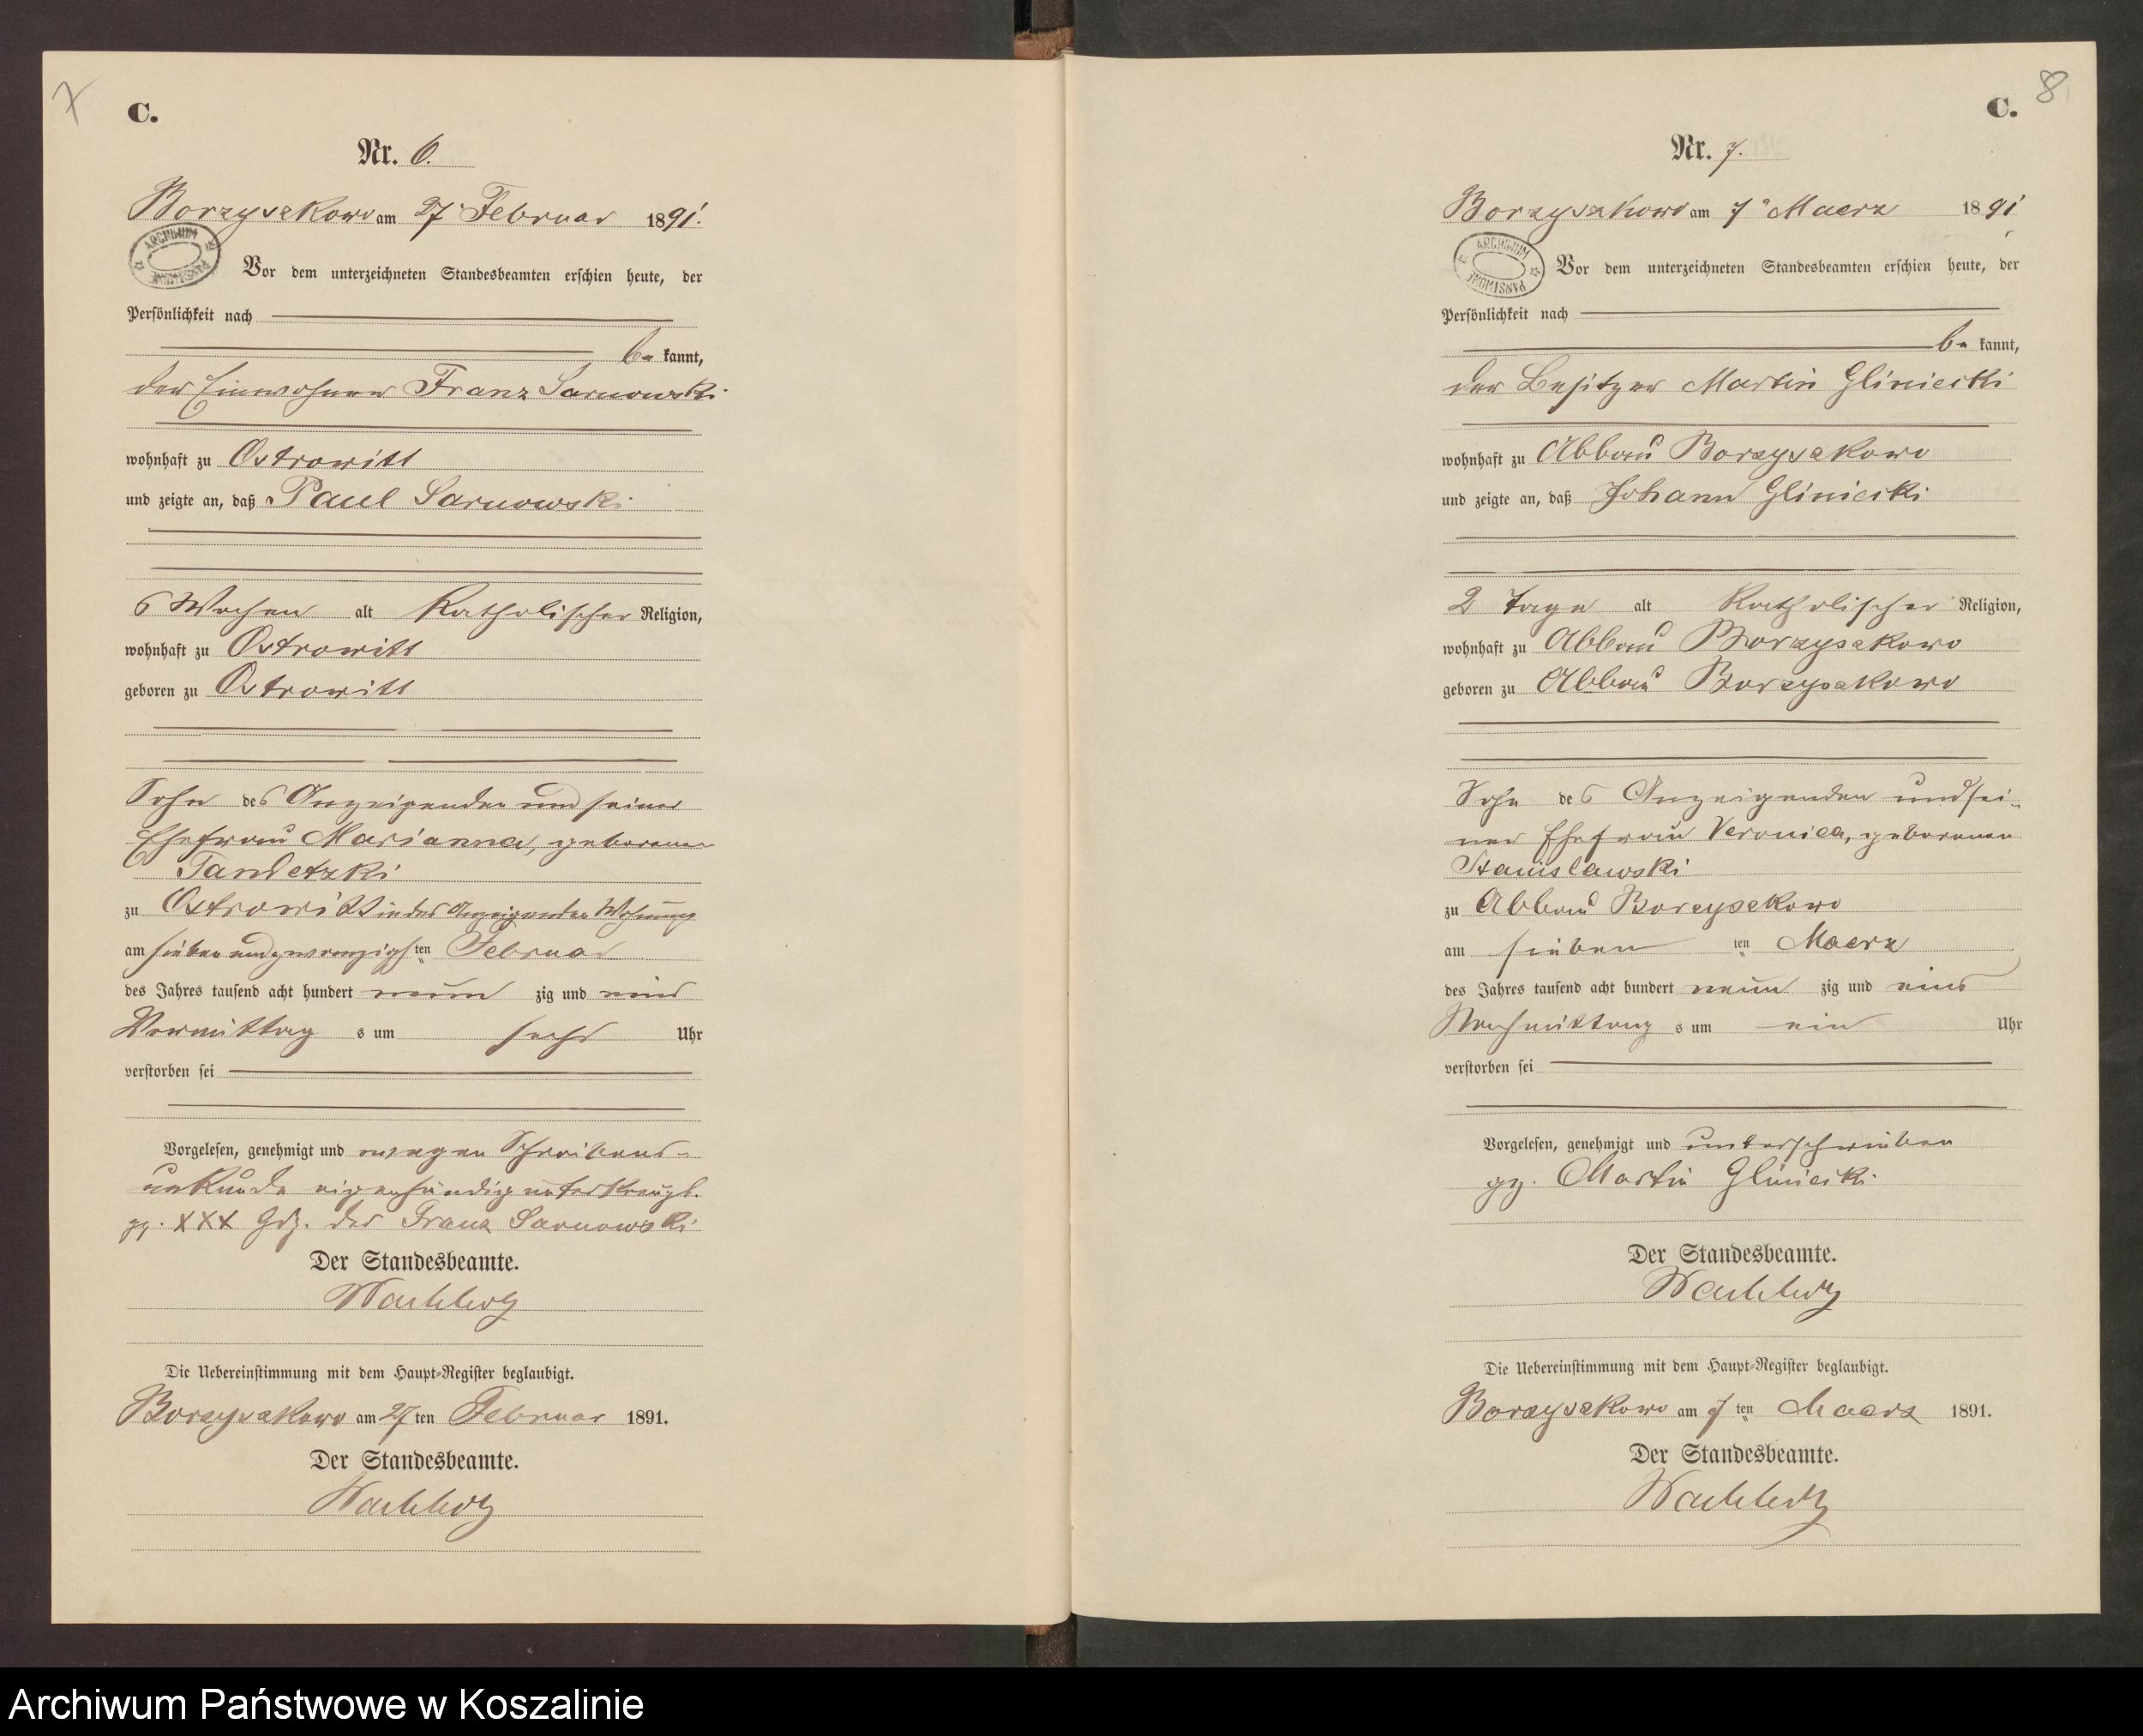 7
C.
Nr. 6.
Borzyszkowo am 27 Februar 1891.
ARCHIWUM PAŃSTWOWE
Vor dem unterzeichneten Standesbeamten erschien heute, der
Persönlichkeit nach
be kannt,
der Einwohner Franz Sarnowski
wohnhaft zu Ostrowitt
und zeigte an, daß Paul Sarnowski
6 Wochen alt katholischer Religion,
wohnhaft zu Ostrowitt
geboren zu Ostrowitt
Sohn des Anzeigenden und seiner
Ehefrau Marianna, geborenen
Tandetzki
zu Ostrowitt in des Anzeigenden Wohnung
am sieben und zwanzigsten Februar
des Jahres tausend acht hundert neun zig und eins
Vormittag s um sechs Uhr
verstorben sei
Vorgelesen, genehmigt und wegen Schreibens-
unkunde eigenhändig unterkreuzt.
gz. XXX Hdz. des Franz Sarnowski
Der Standesbeamte.
Wachholz
Die Uebereinstimmung mit dem Haupt-Register beglaubigt.
Borzyszkowo am 27 ten Februar 1891.
Der Standesbeamte.
Wachholz
8
C.
Nr. 7.
Borzyszkowo am 7 Maerz 1891
ARCHIWUM PAŃSTWOWE
Vor dem unterzeichneten Standesbeamten erschien heute, der
Persönlichkeit nach
be kannt,
der Besitzer Martin Gliniecki
wohnhaft zu Abbau Borzyszkowo
und zeigte an, daß Johann Gliniecki
2 Tage alt katholischer Religion,
wohnhaft zu Abbau Borzyszkowo
geboren zu Abbau Borzyszkowo
Sohn des Anzeigenden und sei-
ner Ehefrau Veronica, geborenen
Stanislawski
zu Abbau Borzyszkowo
am sieben ten Maerz
des Jahres tausend acht hundert neun zig und eins
Nachmittag s um ein Uhr
verstorben sei
Vorgelesen, genehmigt und unterschrieben
gz. Martin Gliniecki
Der Standesbeamte.
Wachholz
Die Uebereinstimmung mit dem Haupt-Register beglaubigt.
Borzyszkowo am 7 ten Maerz 1891.
Der Standesbeamte.
Wachholz
Archiwum Państwowe w Koszalinie